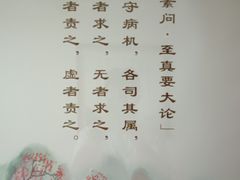 素问·至真要大论」
守病机，各司其属，
者求之，无者求之，
者责之，虚者责之。